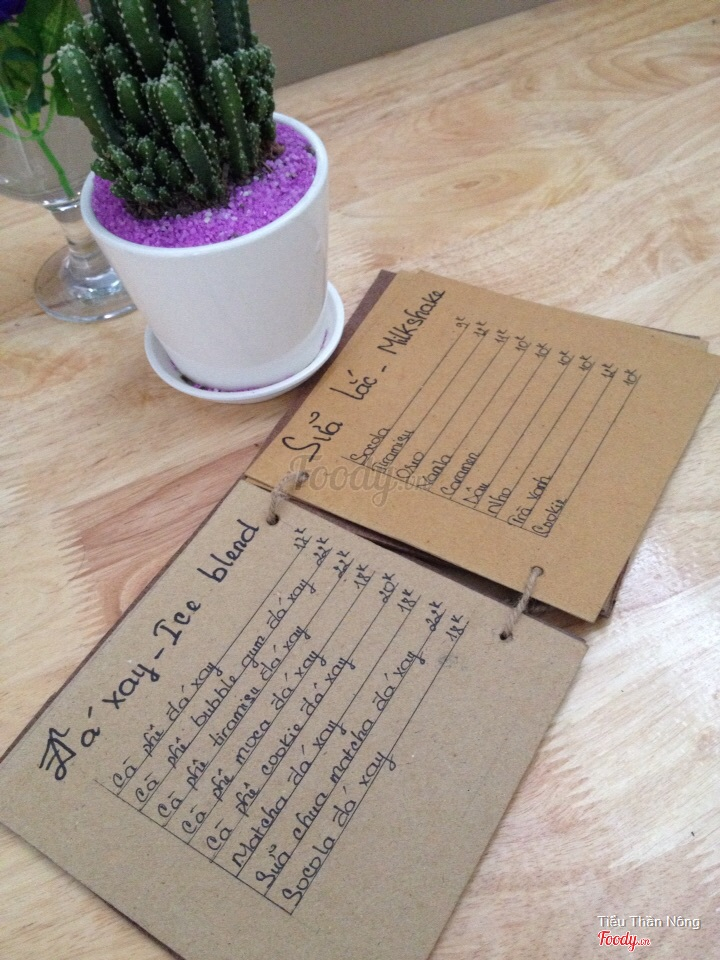 Sửa lắc - Milkshake
Socola 9k
Tiramisu 12k
Oreo 11k
Vanila 10k
Caramen 10k
Dâu 10k
Nho 10k
Trà xanh 12k
Cookie 10k
Đá xay - Ice blend
Cà phê đá xay 17k
Cà phê bubble gum đá xay 22k
Cà phê tiramisu đá xay 22k
Cà phê moca đá xay 18k
Cà phê cookie đá xay 20k
Matcha đá xay 18k
Sửa chua matcha đá xay 22k
Socola đá xay 18k
Foody.vn
Tiểu Thần Nông
Foody.vn